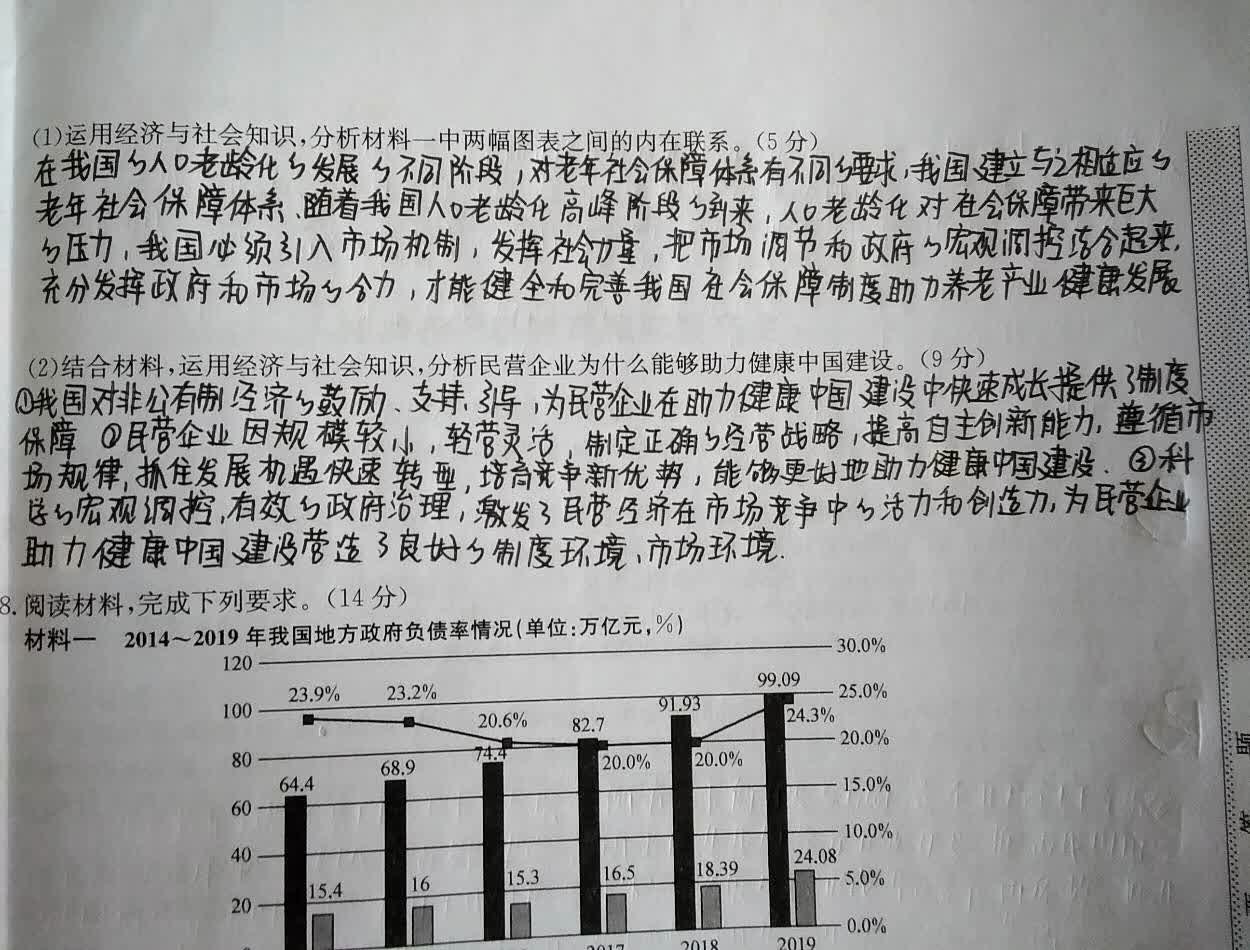 (1)运用经济与社会知识,分析材料一中两幅图表之间的内在联系。(5分)
在我国的人口老龄化的发展的不同阶段,对老年社会保障体系有不同的要求,我国建立与之相适应的
老年社会保障体系、随着我国人口老龄化高峰阶段的到来,人口老龄化对社会保障带来巨大
的压力,我国必须引入市场机制,发挥社会力量,把市场调节和政府的宏观调控结合起来,
充分发挥政府和市场的合力,才能健全和完善我国社会保障制度助力养老产业健康发展
(2)结合材料,运用经济与社会知识,分析民营企业为什么能够助力健康中国建设。(9分)
①我国对非公有制经济的鼓励、支持、引导,为民营企业在助力健康中国建设中快速成长提供了制度
保障 ②民营企业因规模较小,轻营灵活,制定正确的经营战略,提高自主创新能力,遵循市
场规律,抓住发展机遇快速转型,培育竞争新优势,能够更好地助力健康中国建设. ③科
学的宏观调控,有效的政府治理,激发了民营经济在市场竞争中的活力和创造力,为民营企业
助力健康中国建设营造了良好的制度环境、市场环境.
8.阅读材料,完成下列要求。(14分)
材料一 2014~2019年我国地方政府负债率情况(单位:万亿元,%)
120 30.0%
23.9% 23.2% 99.09
100 91.93 25.0%
20.6% 82.7 24.3%
80 74.4 20.0% 20.0% 20.0%
64.4 68.9
60 15.0%
40 10.0%
15.4 16 15.3 16.5 18.39 24.08
20 5.0%
0.0%
2017 2018 2019